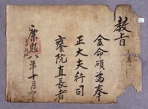 敎旨
金命碩爲奉
正大夫行司
饔院直長者
康熙八年十月